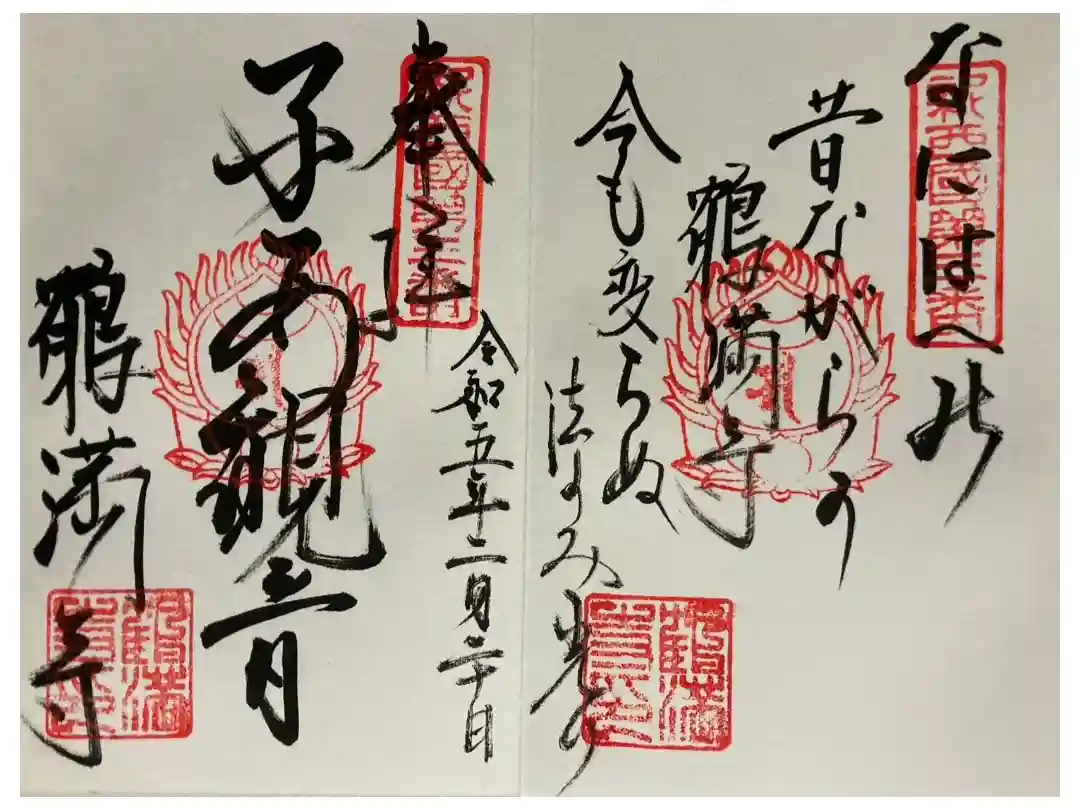 なにはへの
昔ながらの
鶴満寺
今も変らぬ
法のみ光り
令和五年二月二十日
奉拝
子安観音
鶴満寺